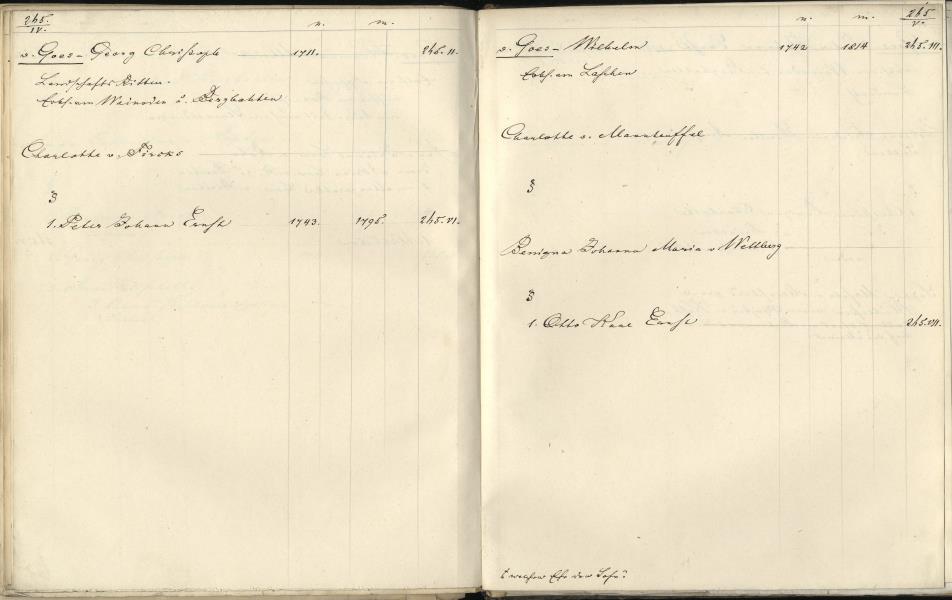 265.
IV.
n.
m.
v. Goes - Georg Christoph 1711. 265. II.
Landschafts Ritten.
Erbh. am Wainoden u.
Charlotte v. Fircks
§
1. Peter Johann Ernst 1743. 1795. 265. VI.
n.
m.
265
V.
v. Goes - Wilhelm 1742 1814 265. III.
Erbh. am Laschen
Charlotte v. Manteuffel
§
Benigna Johanna Maria v Wettberg
§
1. Otto Karl Ernst 265. VII.
welcher Ehe der Sohn?